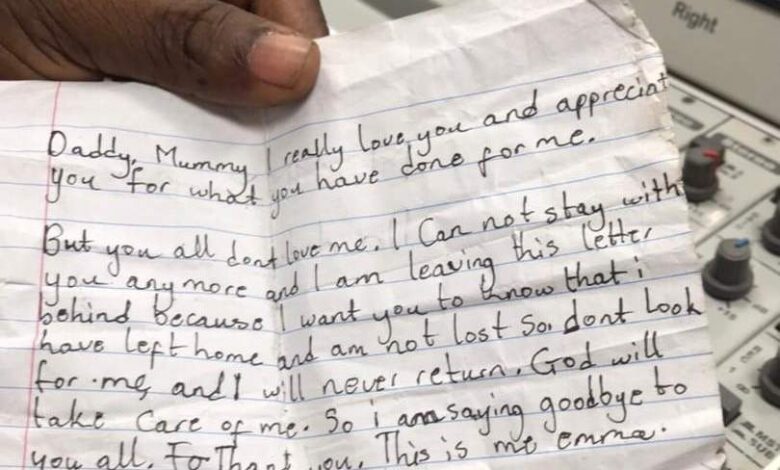 Right
Daddy, Mummy I really love you and appreciat
you for what you have done for me.
But you all dont love me. I Can not stay with
you any more and I am leaving this letter
behind because I want you to know that i
have left home and am not lost So, dont Look
for me, and I will never return. God will
take Care of me. So i am saying goodbye to
you all. Thank you. This is me emma.